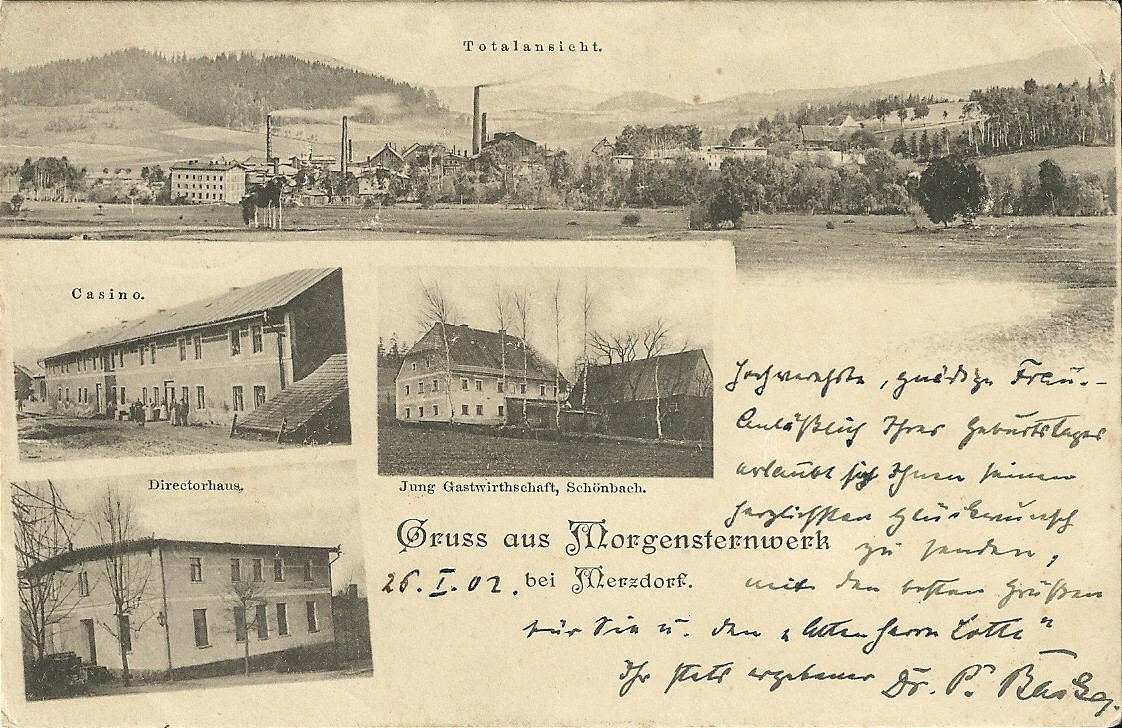 Totalansicht.
Casino.
Directorhaus.
Jung Gastwirthschaft, Schönbach.
Gruss aus Morgensternwerk
bei Merzdorf.
26.I.02.
Hochverehrte, gnädige Frau.-
Anläßlich Ihres Geburtstages
erlaubt sich Ihnen seinen
herzlichsten Glückwunsch
zu senden,
mit den besten Grüßen
für Sie u. den „Alten Herrn
Ihr stets ergebener Dr. P.